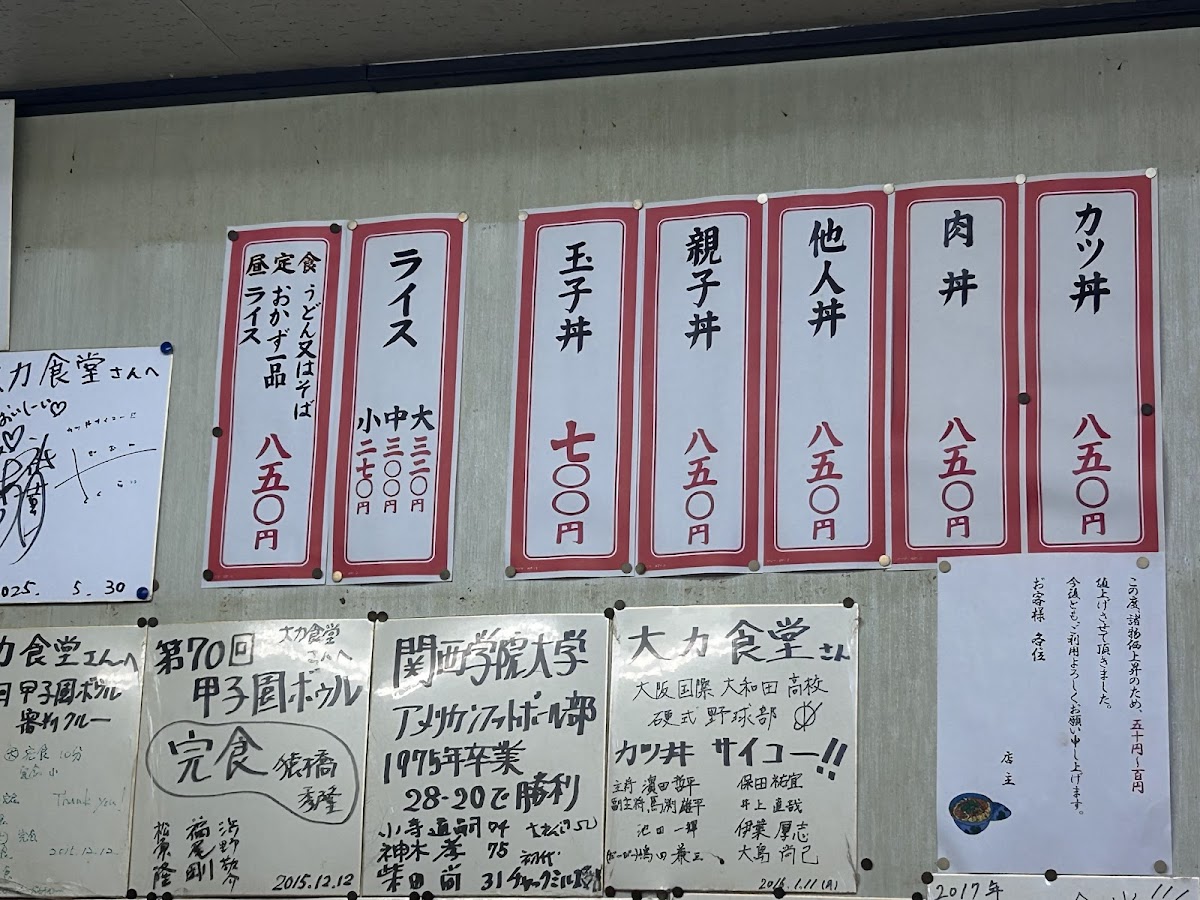 カツ丼
八五〇円
肉丼
八五〇円
他人丼
八五〇円
親子丼
八五〇円
玉子丼
七〇〇円
ライス
大 三二〇円
中 三〇〇円
小 二七〇円
昼定食
うどん又はそば
おかず一品
ライス
八五〇円
この度諸物価上昇のため、五十円〜百円
値上げさせて頂きました。
今後ともご利用よろしくお願い申し上げます。
お客様 各位
店主
力食堂さんへ
おいしーい♡
2025. 5. 30
力食堂さんへ
甲子園ボウル
審判クルー
完食
Thank you!
2015.12.12
大力食堂
さんへ
第70回
甲子園ボウル
完食
猿橋
秀隆
2015.12.12
関西学院大学
アメリカンフットボール部
1975年卒業
28-20で勝利
75
初代
31
大力食堂さん
大阪国際大和田高校
硬式野球部
カツ丼 サイコー!!
主将 濱田哲平
副主将 馬渕雄平
池田一輝
保田祐宜
井上直哉
伊葉厚志
大島尚己
2016.1.11(月)
2017年